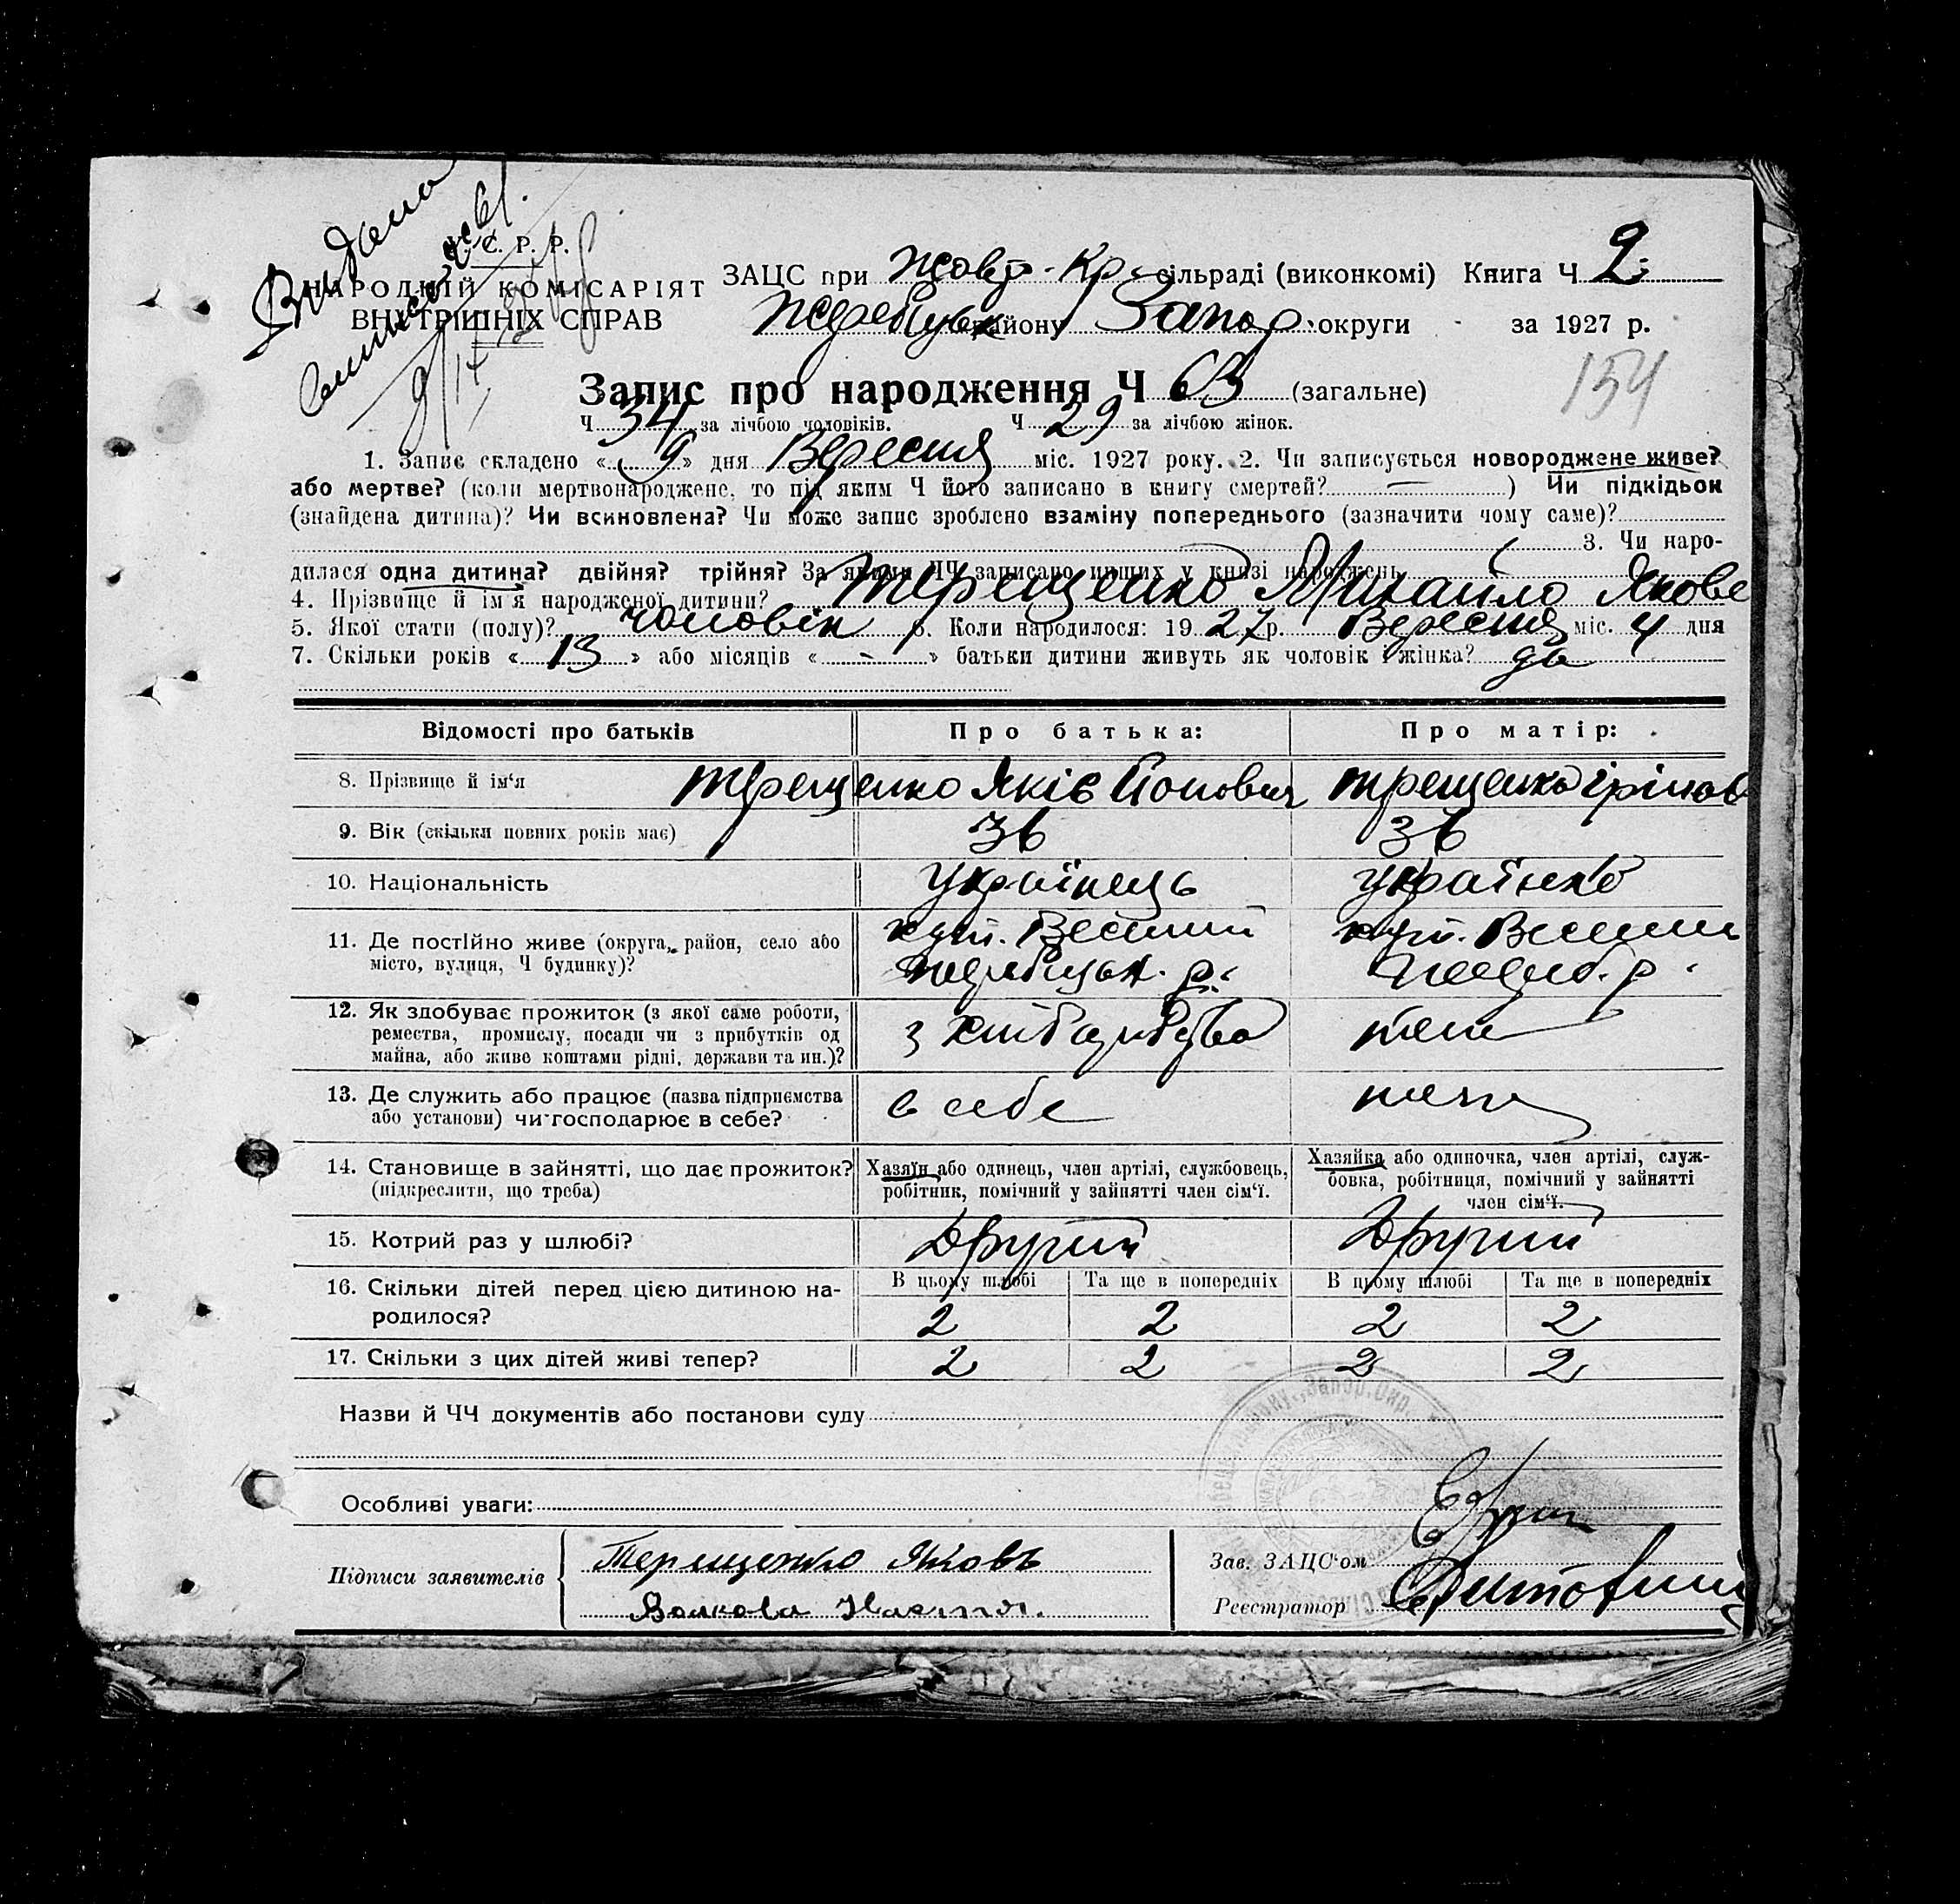 Видана
У. С. Р. Р.
НАРОДНІЙ КОМІСАРІЯТ
ВНУТРІШНІХ СПРАВ
ЗАЦС при Жовт-Кр сільраді (виконкомі) Книга Ч 2
району Запор. округи за 1927 р.
154
Запис про народження Ч 63 (загальне)
Ч 34 за лічбою чоловіків. Ч 29 за лічбою жінок.
1. Запис складено « 9 » дня Вересня міс. 1927 року. 2. Чи записується новороджене живе?
або мертве? (коли мертвонароджене, то під яким Ч його записано в книгу смертей? — ) Чи підкідьок
(знайдена дитина)? Чи всиновлена? Чи може запис зроблено взаміну попереднього (зазначити чому саме)?
3. Чи наро-
дилася одна дитина? двійня? трійня? За якими ЧЧ записано инших у книзі народжень
4. Прізвище й ім'я народженої дитини? Терещенко Михайло Якове
5. Якої стати (полу)? чоловік 6. Коли народилося: 1927 р. Вересня міс. 4 дня
7. Скільки років « 13 » або місяців « - » батьки дитини живуть як чоловік і жінка? да
Відомості про батьків Про батька: Про матір:
8. Прізвище й ім'я Трещенко Яків Трещенко
9. Вік (скільки повних років має) 36 36
10. Національність Українець Українка
11. Де постійно живе (округа, район, село або хут. Веселий хут. Веселий
місто, вулиця, Ч будинку)? р. р.
12. Як здобуває прожиток (з якої саме роботи,
ремества, промислу, посади чи з прибутків од з хліборобства теж
майна, або живе коштами рідні, держави та ин.)?
13. Де служить або працює (назва підприємства в себе теж
або установи) чи господарює в себе?
14. Становище в зайнятті, що дає прожиток? Хазяїн або одинець, член артілі, службовець, Хазяйка або одиночка, член артілі, служ-
(підкреслити, що треба) робітник, помічний у зайнятті член сім'ї. бовка, робітниця, помічний у зайнятті
член сім'ї.
15. Котрий раз у шлюбі? Другий Другий
16. Скільки дітей перед цією дитиною на- В цьому шлюбі Та ще в попередніх В цьому шлюбі Та ще в попередніх
родилося? 2 2 2 2
17. Скільки з цих дітей живі тепер? 2 2 2 2
Назви й ЧЧ документів або постанови суду
Особливі уваги:
Підписи заявителів Терещенко Яковъ
Волкова Настя.
Зав. ЗАЦС'ом
Реєстратор